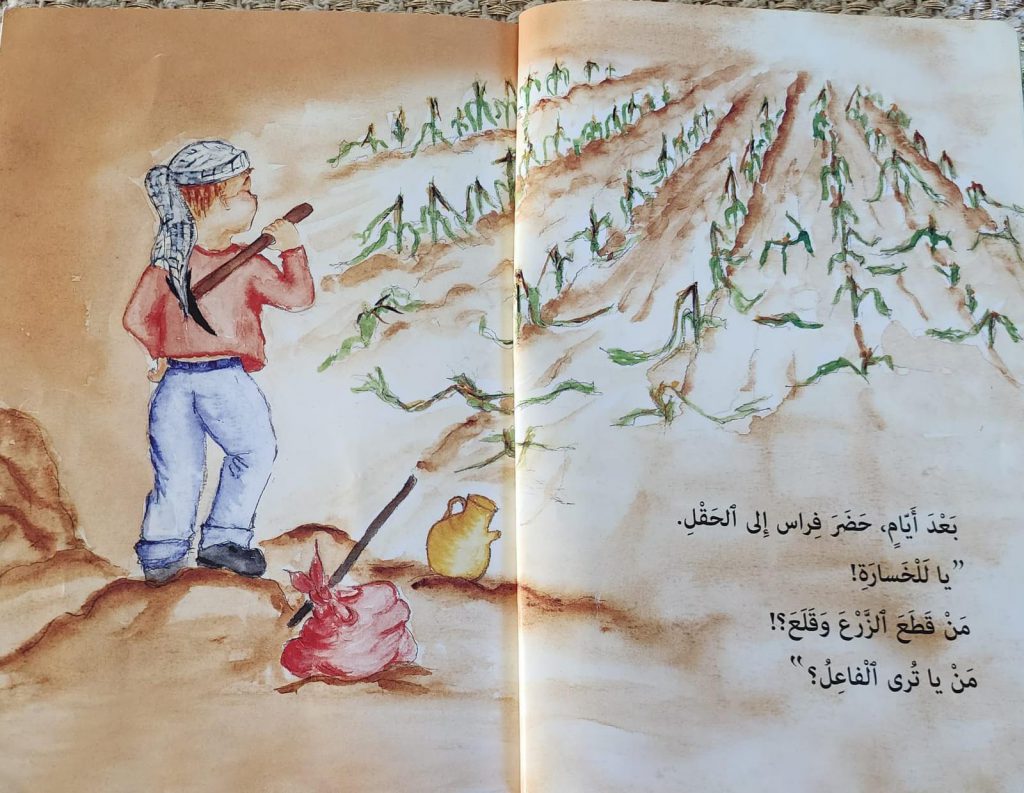 بَعْدَ أَيّامٍ، حَضَرَ فِراس إِلى ٱلحَقْلِ.
"يا لَلْخَسارَةِ!
مَنْ قَطَعَ ٱلزَّرْعَ وَقَلَعَ؟!
مَنْ يا تُرى ٱلْفاعِلُ؟"